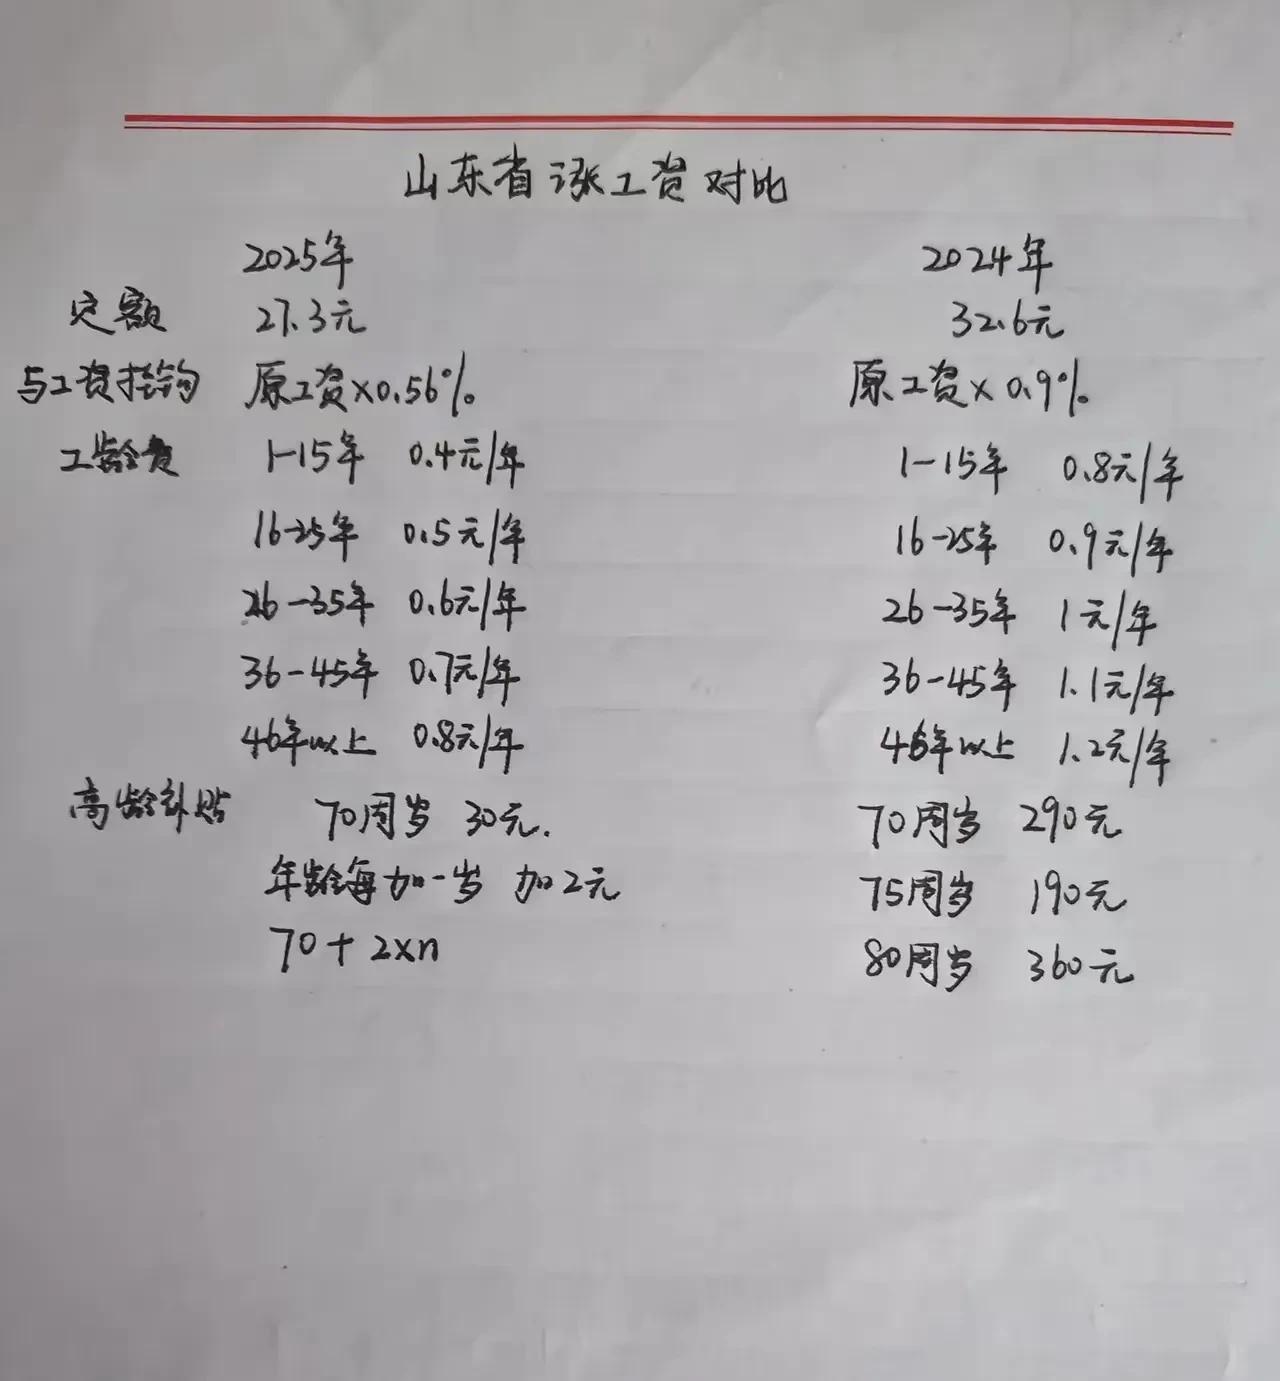 山东省涨工资对比
2025年 2024年
定额 27.3元 32.6元
与工资挂钩 原工资×0.56% 原工资×0.9%
工龄费 1-15年 0.4元/年 1-15年 0.8元/年
16-25年 0.5元/年 16-25年 0.9元/年
26-35年 0.6元/年 26-35年 1元/年
36-45年 0.7元/年 36-45年 1.1元/年
46年以上 0.8元/年 46年以上 1.2元/年
高龄补贴 70周岁 30元. 70周岁 290元
年龄每加一岁 加2元 75周岁 190元
70+2×n 80周岁 360元